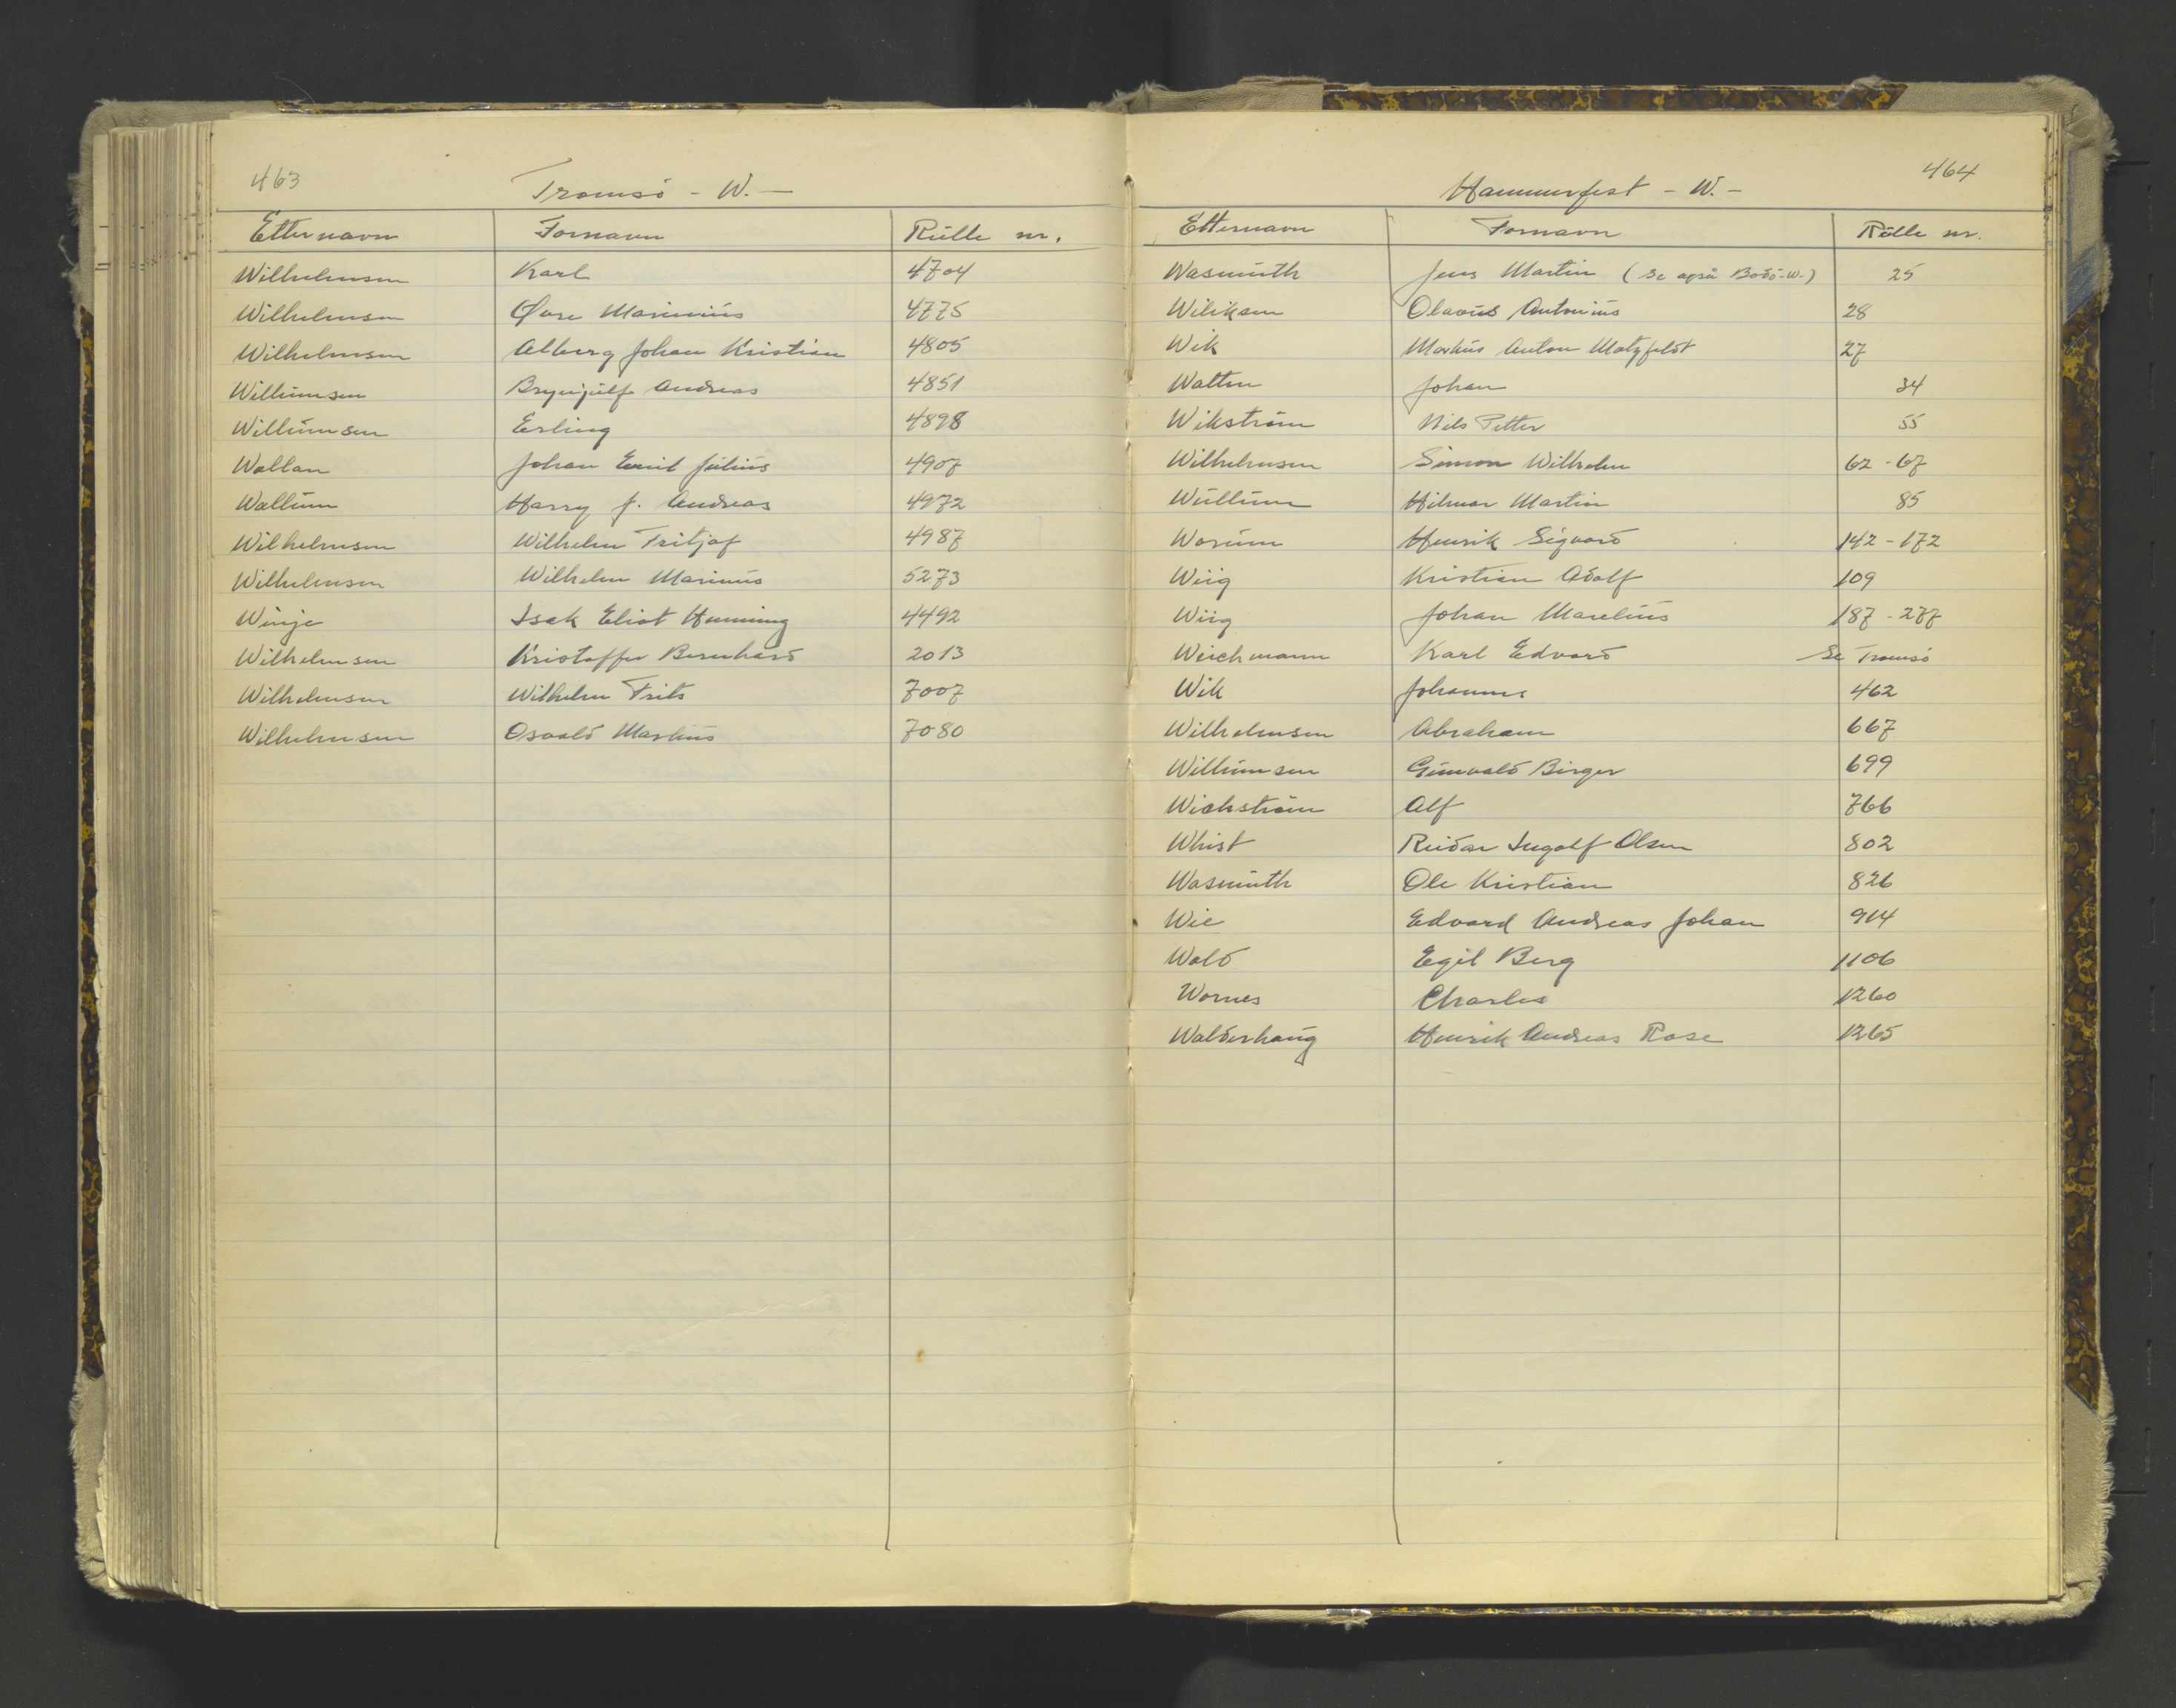 463
Tromsø - W. -
Etternavn Fornavn Rulle nr.
Wilhelmsen Karl 4704
Wilhelmsen Øvre Marinius 4775
Wilhelmsen Alberg Johan Kristian 4805
Willumsen Brynjulf Andreas 4851
Willumsen Erling 4898
Wallan Johan Emil Julius 4907
Wallum Harry J. Andreas 4972
Wilhelmsen Wilhelm Fritjof 4987
Wilhelmsen Wilhelm Marinus 5273
Winje Isak Eliot Henning 4492
Wilhelmsen Kristoffer Bernhard 2013
Wilhelmsen Wilhelm Frits 7007
Wilhelmsen Osvald Markus 7080
464
Hammerfest - W. -
Etternavn Fornavn Rulle nr.
Wasmuth Jens Martin (Se også Bodø-W-) 25
Wiliksen Olavus Antonius 28
Wik Markus Anton Motzfeldt 27
Watten Johan 34
Wikström Nils Petter 55
Wilhelmsen Simon Wilhelm 62-67
Wullum Hilmar Martin 85
Worum Henrik Sigvard 142-172
Wiig Kristian Adolf 109
Wiig Johan Marelius 187-277
Weichmann Karl Edvard Se Tromsø
Wik Johannes 462
Wilhelmsen Abraham 667
Willumsen Gunvald Birger 699
Wickstrøm Alf 766
Whist Reidar Ingolf Olsen 802
Wasmuth Ole Kristian 826
Wie Edvard Andreas Johan 914
Wold Egil Berg 1106
Wornes Charles 1260
Walderhaug Henrik Andreas Rose 1265